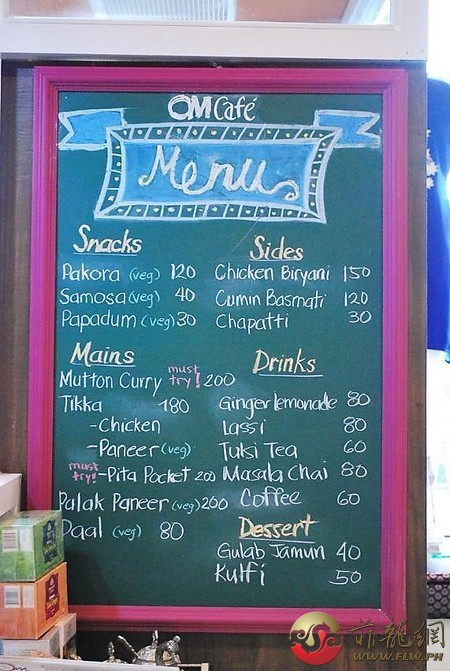 OM Café
Menu
Snacks
Pakora (veg) 120
Samosa (veg) 40
Papadum (veg) 30
Sides
Chicken Biryani 150
Cumin Basmati 120
Chapatti 30
Mains
Mutton Curry must try! 200
Tikka 180
-Chicken
-Paneer (veg)
must try! -Pita Pocket 200
Palak Paneer (veg) 200
Daal (veg) 80
Drinks
Ginger lemonade 80
Lassi 80
Tulsi Tea 60
Masala Chai 80
Coffee 60
Dessert
Gulab Jamun 40
Kulfi 50
菲龍網
WWW.FLW.PH